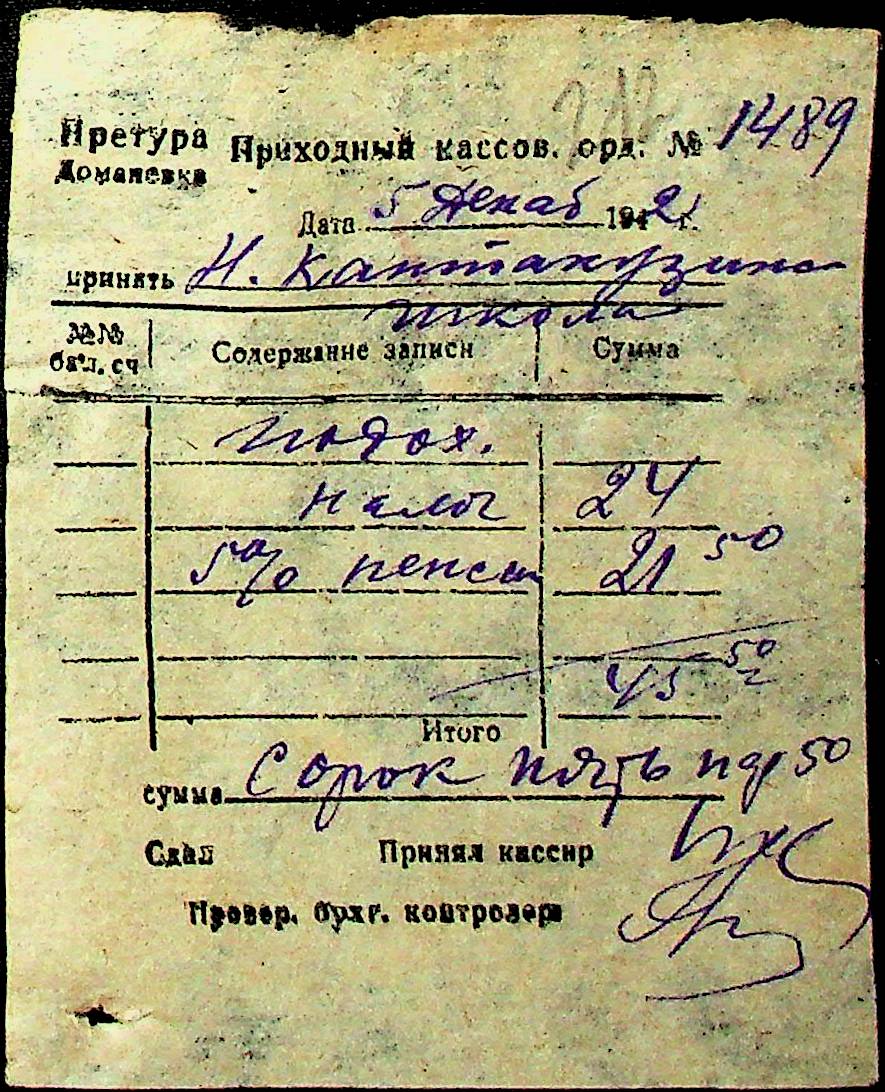 212
Претура Приходный кассов. орд. № 1489
Доманевка
Дата 5 Декаб 1942 г.
принять Н. Кантакузина
школа
№№ бал. сч Содержание записи Сумма
подох.
налог 24
5% пенси 21 50
45 50
Итого
сумма Сорок пять 50
Сдал Принял кассир
Провер. бухг. контролера